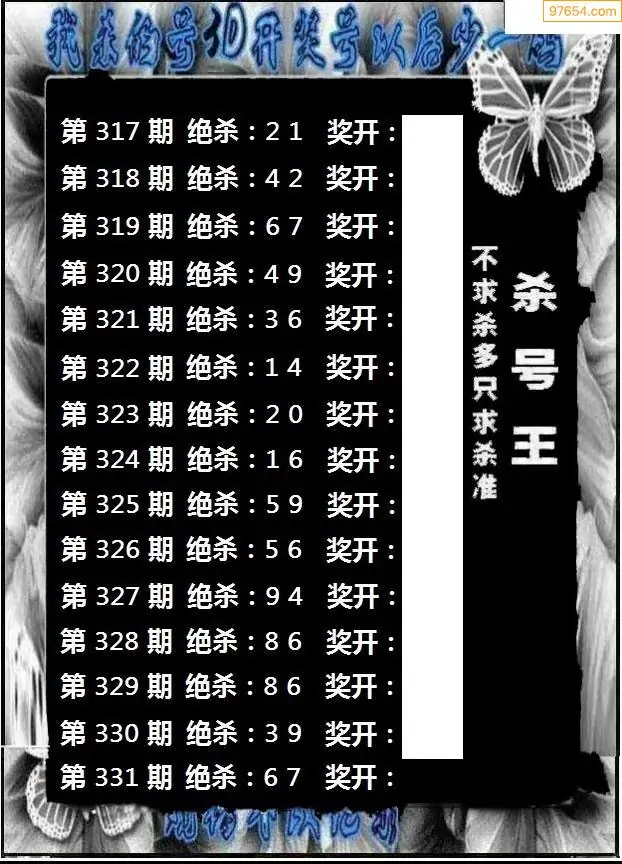 97654.com
我杀的号3D开奖号以后少一码
第 317 期 绝杀：2 1 奖开：
第 318 期 绝杀：4 2 奖开：
第 319 期 绝杀：6 7 奖开：
第 320 期 绝杀：4 9 奖开：
第 321 期 绝杀：3 6 奖开：
第 322 期 绝杀：1 4 奖开：
第 323 期 绝杀：2 0 奖开：
第 324 期 绝杀：1 6 奖开：
第 325 期 绝杀：5 9 奖开：
第 326 期 绝杀：5 6 奖开：
第 327 期 绝杀：9 4 奖开：
第 328 期 绝杀：8 6 奖开：
第 329 期 绝杀：8 6 奖开：
第 330 期 绝杀：3 9 奖开：
第 331 期 绝杀：6 7 奖开：
杀号王
不求杀多只求杀准